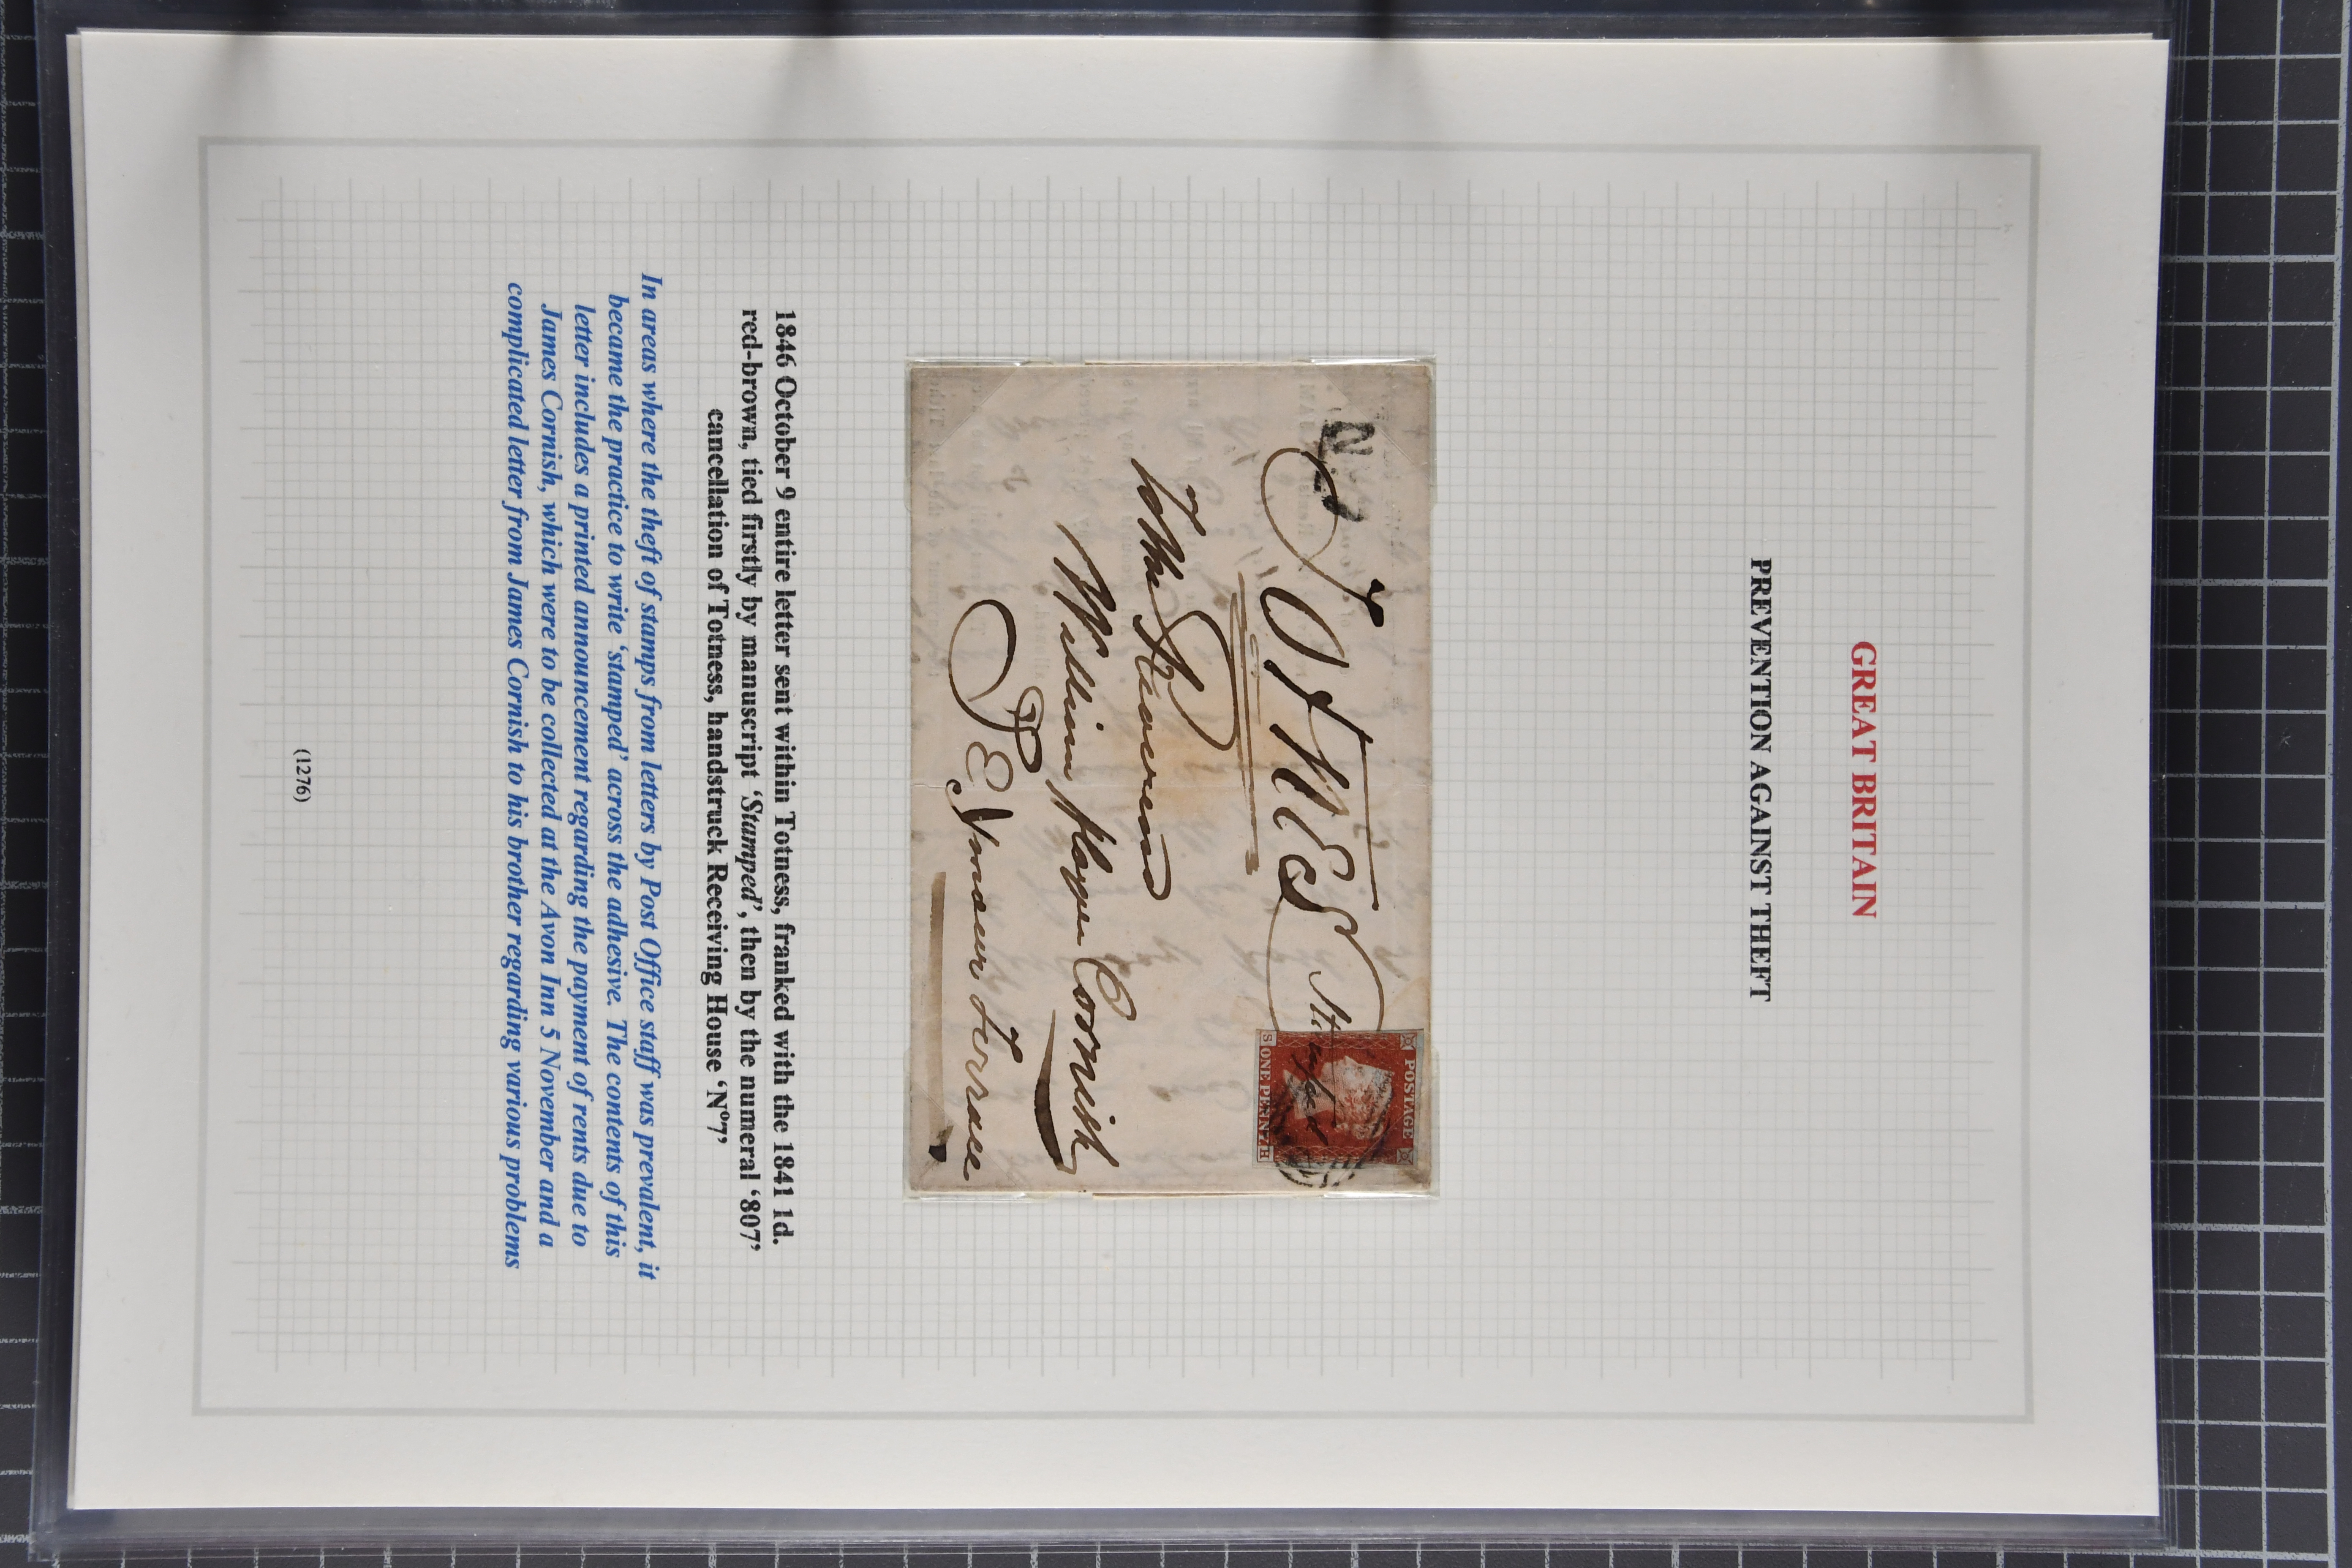 GREAT BRITAIN
PREVENTION AGAINST THEFT
No7
Totnes Stamped
The Reverend
William floyer Cornish
Seymour Terrace
POSTAGE
ONE PENNY
S H
1846 October 9 entire letter sent within Totness, franked with the 1841 1d.
red-brown, tied firstly by manuscript ‘Stamped’, then by the numeral ‘807’
cancellation of Totness, handstruck Receiving House ‘Nº7’
In areas where the theft of stamps from letters by Post Office staff was prevalent, it
became the practice to write ‘stamped’ across the adhesive. The contents of this
letter includes a printed announcement regarding the payment of rents due to
James Cornish, which were to be collected at the Avon Inn 5 November and a
complicated letter from James Cornish to his brother regarding various problems
(1276)